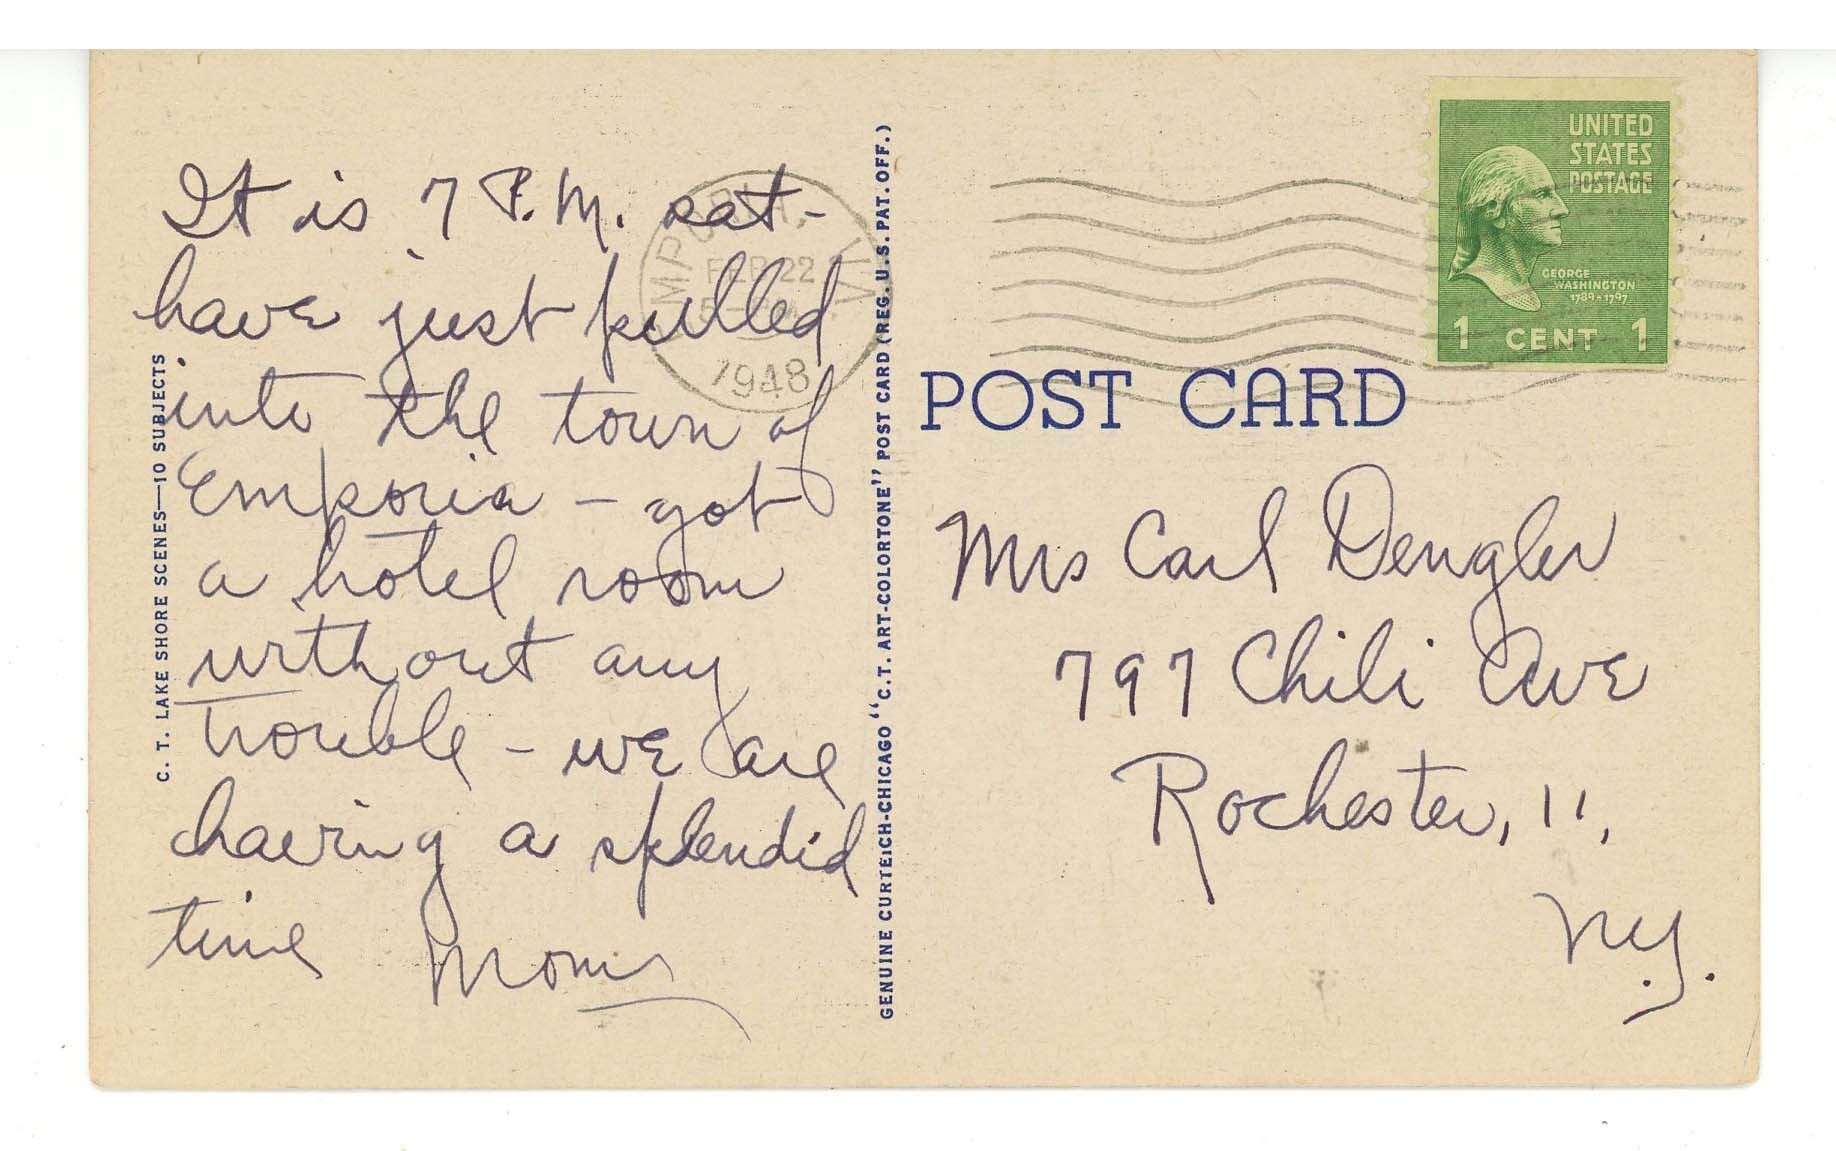 It is 7 P.M. sat-
have just pulled
into the town of
Emporia - got
a hotel room
without any
trouble - we are
having a splendid
time Mom
C. T. LAKE SHORE SCENES—10 SUBJECTS
FEB 22
1948
GENUINE CURTEICH-CHICAGO "C. T. ART-COLORTONE" POST CARD (REG. U. S. PAT. OFF.)
UNITED
STATES
POSTAGE
GEORGE
WASHINGTON
1789-1797
1 CENT 1
POST CARD
Mrs Carl Dengler
797 Chili Ave
Rochester, 11,
N.Y.